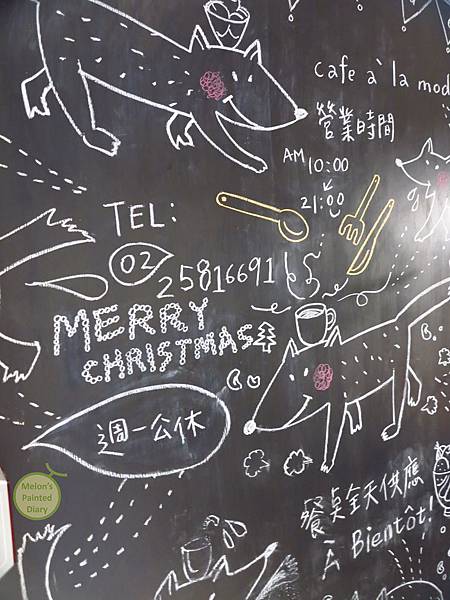 cafe à la mod
營業時間
AM 10:00
21:00
TEL:
02
25816691
MERRY
CHRISTMAS
週一公休
Melon's
Painted
Diary
餐桌全天供應
À Bientôt!